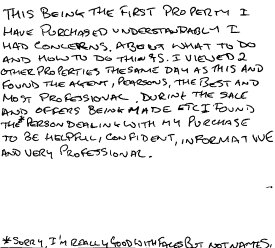 THIS BEING THE FIRST PROPERTY I
HAVE PURCHASED UNDERSTANDABLY I
HAD CONCERNS. ABOUT WHAT TO DO
AND HOW TO DO THINGS. I VIEWED 2
OTHER PROPERTIES THE SAME DAY AS THIS AND
FOUND THE AGENT, PEARSONS, THE BEST AND
MOST PROFESSIONAL. DURING THE SALE
AND OFFERS BEING MADE ETC I FOUND
THE *PERSON DEALING WITH MY PURCHASE
TO BE HELPFUL, CONFIDENT, INFORMATIVE
AND VERY PROFESSIONAL.
*SORRY, I'M REALLY GOOD WITH FACES BUT NOT NAMES.